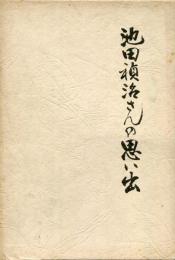 池田禎治さんの思い出